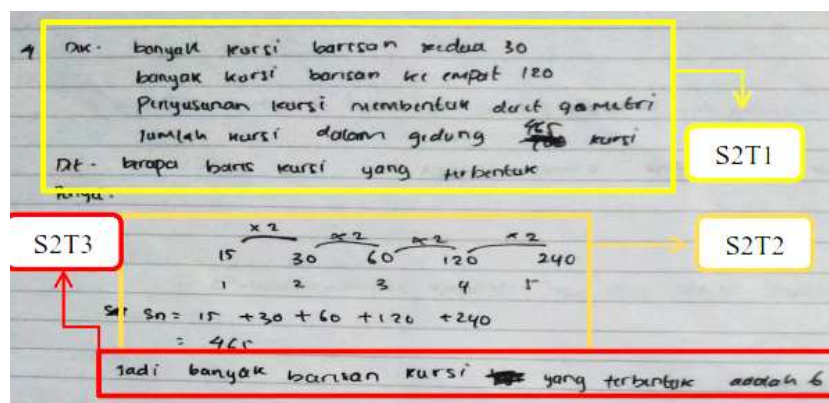 4 Dik. banyak kursi barisan kedua 30
banyak kursi barisan ke empat 120
Penyusunan kursi membentuk deret geometri
Jumlah kursi dalam gedung 465 kursi
Dit. berapa baris kursi yang terbentuk
S2T1
S2T3
S2T2
x2 x2 x2 x2
15 30 60 120 240
1 2 3 4 5
Sn = 15 + 30 + 60 + 120 + 240
= 465
Jadi banyak barisan kursi yang terbentuk adalah 6